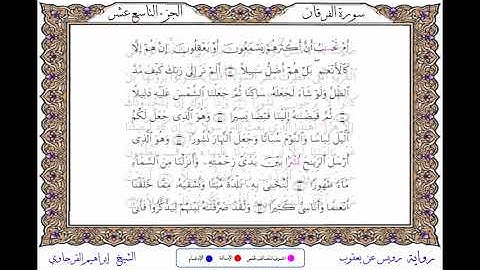 سورة الفرقان
الجزء التاسع عشر
أَمْ تَحْسَبُ أَنَّ أَكْثَرَهُمْ يَسْمَعُونَ أَوْ يَعْقِلُونَ إِنْ هُمْ إِلَّا
كَالْأَنْعَامِ بَلْ هُمْ أَضَلُّ سَبِيلًا أَلَمْ تَرَ إِلَى رَبِّكَ كَيْفَ مَدَّ
الظِّلَّ وَلَوْ شَاءَ لَجَعَلَهُ سَاكِنًا ثُمَّ جَعَلْنَا الشَّمْسَ عَلَيْهِ دَلِيلًا
ثُمَّ قَبَضْنَاهُ إِلَيْنَا قَبْضًا يَسِيرًا وَهُوَ الَّذِي جَعَلَ لَكُمُ
الَّيْلَ لِبَاسًا وَالنَّوْمَ سُبَاتًا وَجَعَلَ النَّهَارَ نُشُورًا وَهُوَ الَّذِي
أَرْسَلَ الرِّيَاحَ نُشُرًا بَيْنَ يَدَيْ رَحْمَتِهِ وَأَنْزَلْنَا مِنَ السَّمَاءِ
مَاءً طَهُورًا لِنُحْيِيَ بِهِ بَلْدَةً مَيْتًا وَنُسْقِيَهُ مِمَّا خَلَقْنَا
أَنْعَامًا وَأَنَاسِيَّ كَثِيرًا وَلَقَدْ صَرَّفْنَاهُ بَيْنَهُمْ لِيَذَّكَّرُوا فَأَبَى
رواية رويس عن يعقوب
الشيخ إبراهيم القرجاوي